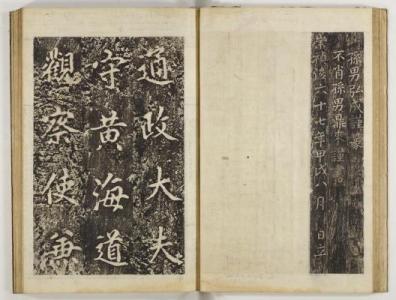 孫男弘成謹
不肖孫男鼎謹
崇禎後六十七年甲戌八月 日立
通政大夫
守黃海道
觀察使兼